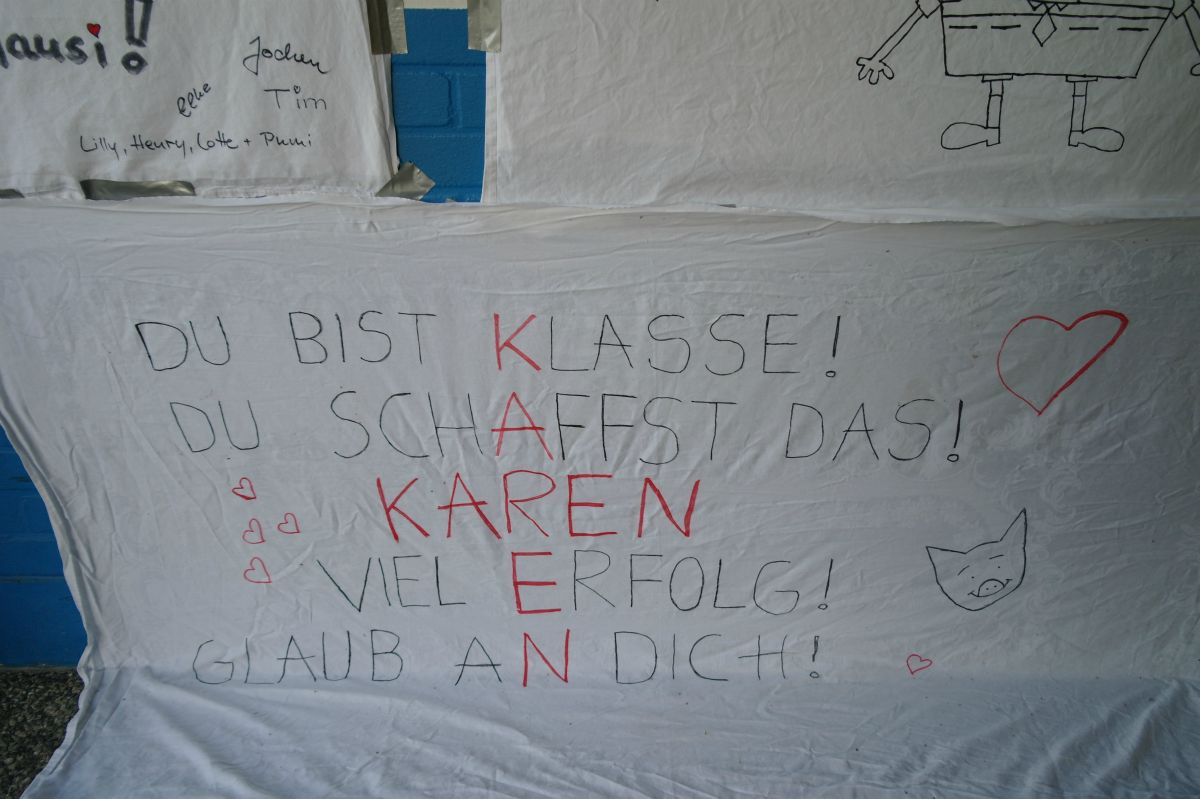 ausi!
Jochen
Elke
Tim
Lilly, Henry, Lotte +
DU BIST KLASSE!
DU SCHAFFST DAS!
KAREN
VIEL ERFOLG!
GLAUB AN DICH!